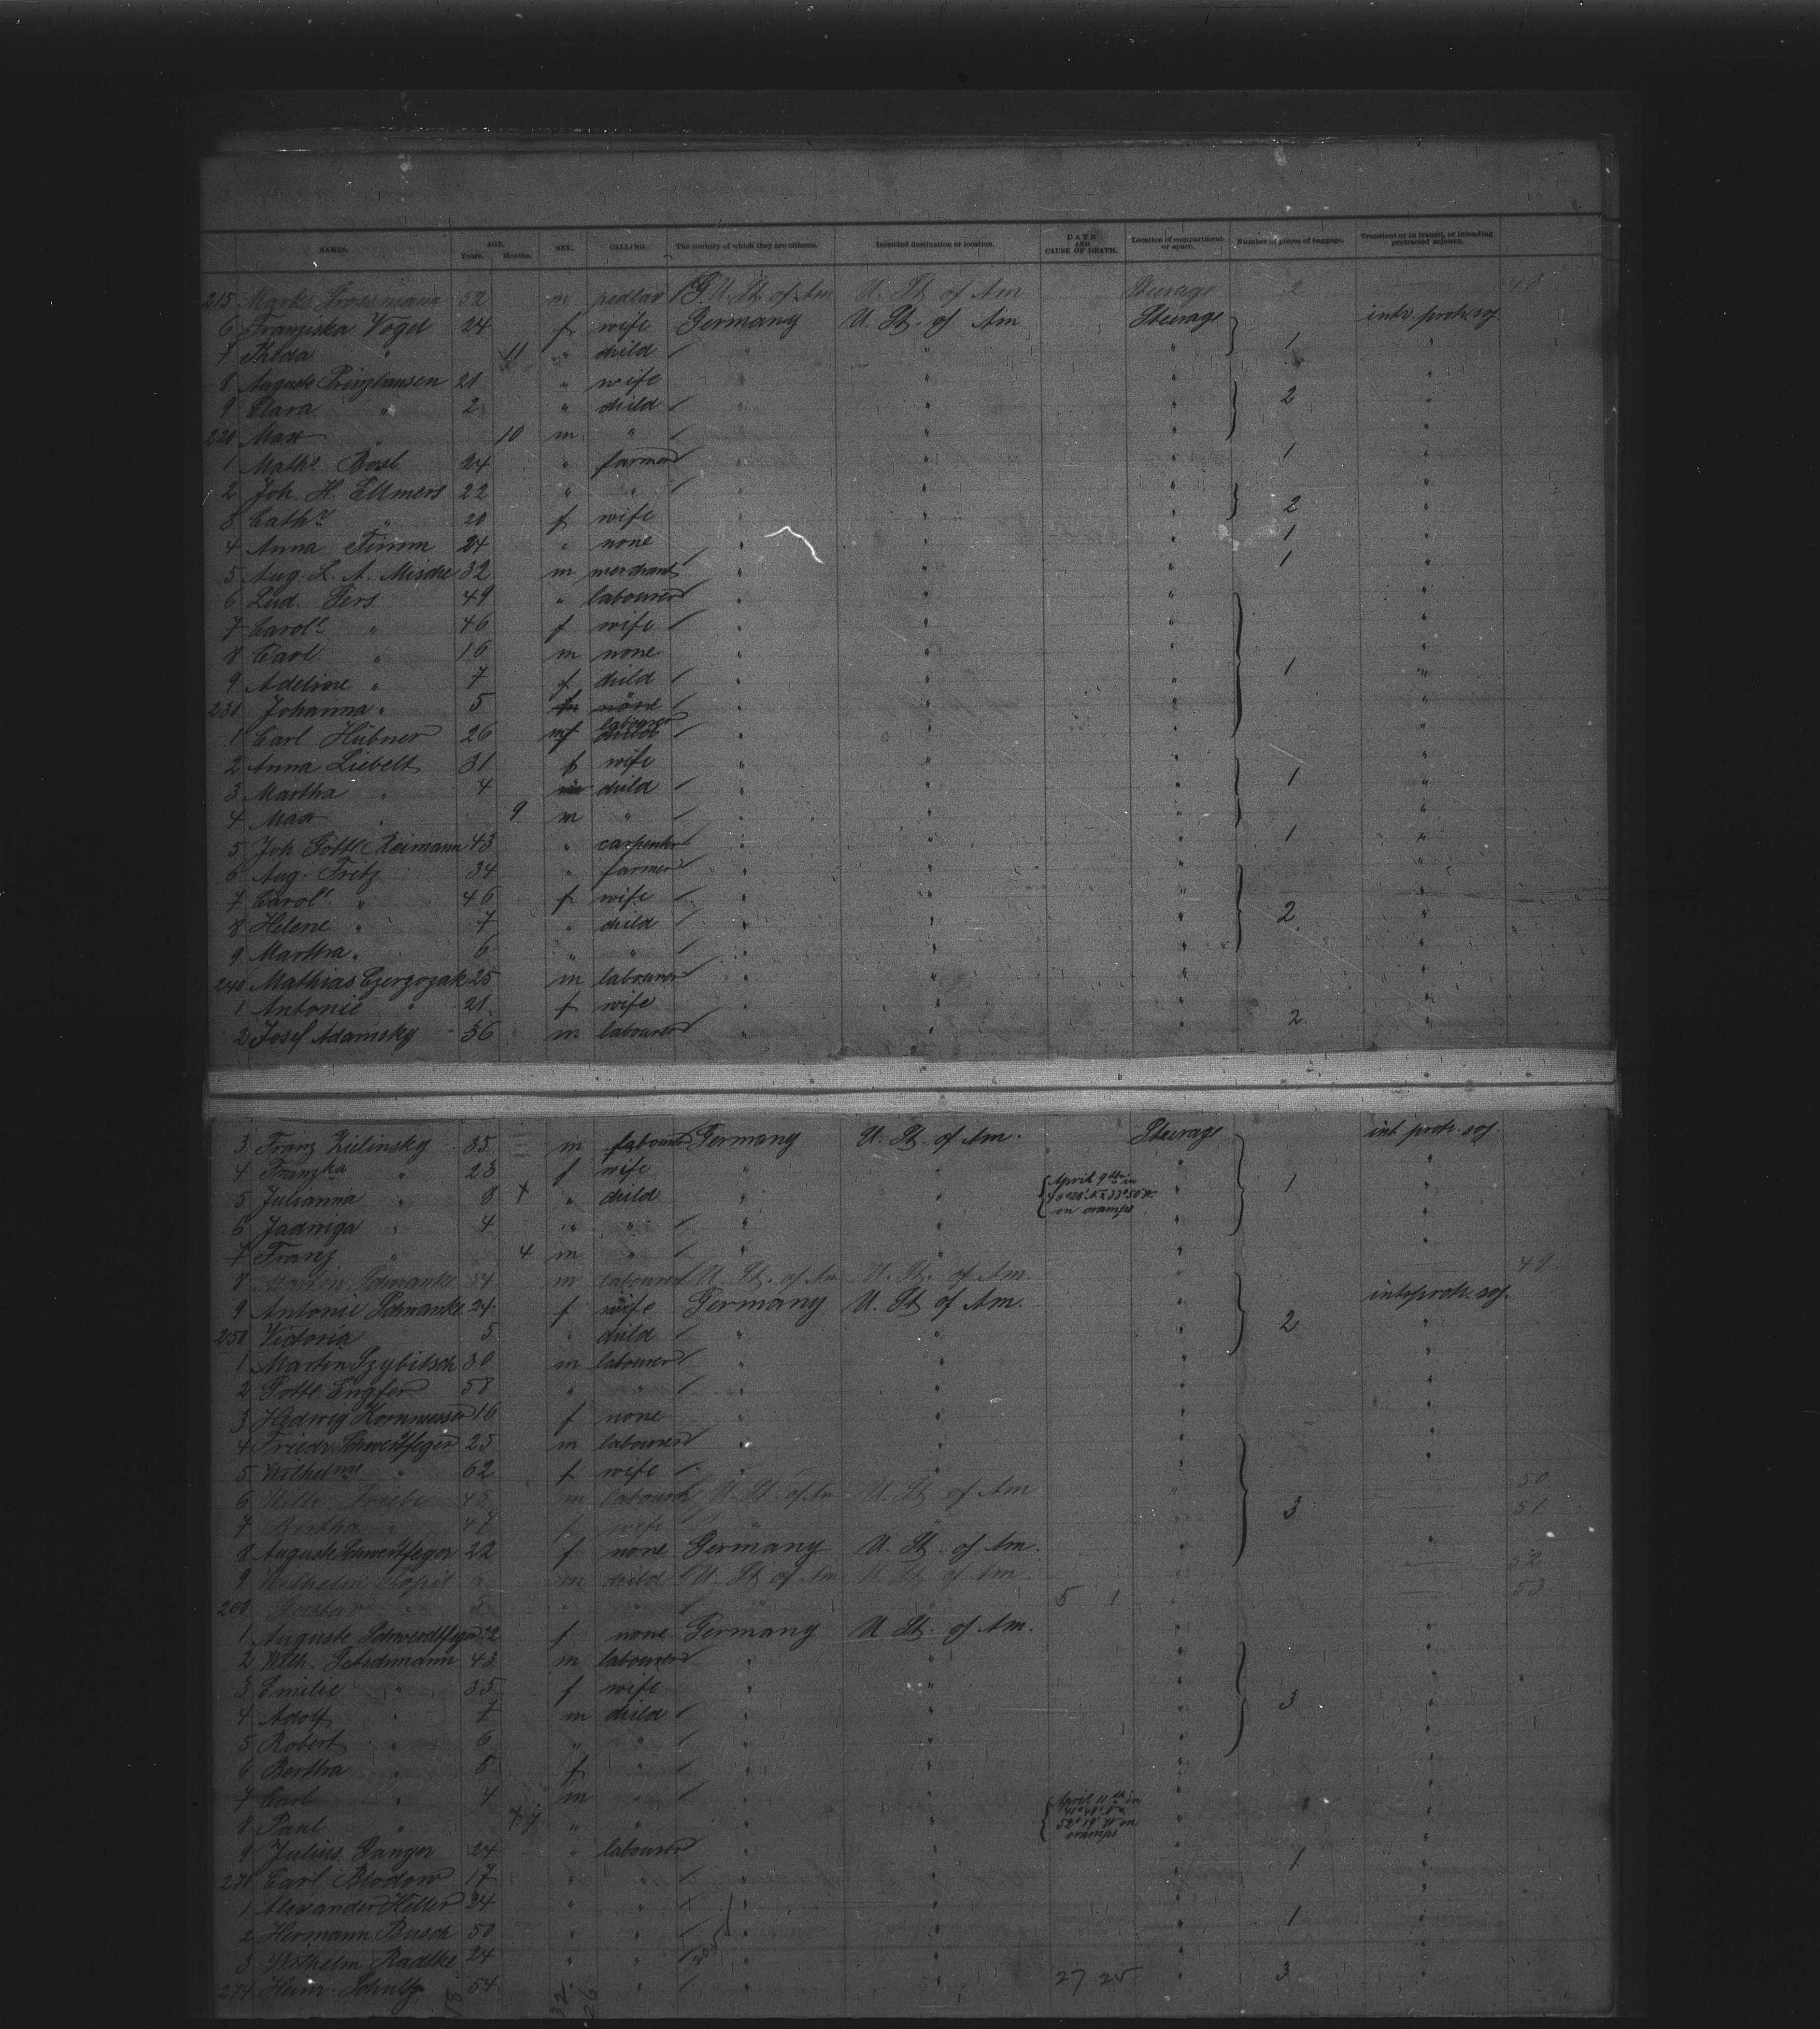 NAMES. AGE. Years. Months. SEX. CALLING. The country of which they are citizens. Intended destination or location. DATE AND CAUSE OF DEATH. Location of compartment or space. Number of pieces of baggage. Transient or in transit, or intending protracted sojourn.
215 Markus Grossmann 52 m pedlar U. St. of Am U. St. of Am Steerage 2 48
6 Franziska Vogel 24 f wife Germany U. St. of Am Steerage intr. protr. soj.
7 " 11 " child " " " 1 "
8 Auguste Prinzhausen 21 " wife " " " "
9 Clara " 2 " child " " " 2 "
220 Max " 10 m " " " " "
1 Maths. 24 " farmer " " " 1 "
2 Joh. H. Ellmers 22 " " " " " "
3 Cathe " 20 f wife " " " 2 "
4 Anna Timm 24 " none " " " 1 "
5 Aug. L. A. Mische 32 m merchant " " " 1 "
6 Lud. Fers 49 " labourer " " " "
7 Carole " 46 f wife " " " "
8 Carl " 16 m none " " " "
9 Adeline " 7 f child " " " 1 "
230 Johanna " 5 " " " "
1 Carl Hübner 26 m labourer " " " "
2 Anna Liebelt 31 f wife " " " "
3 Martha " 4 child " " " 1 "
4 Max " 9 m " " " " "
5 Joh Gottl. Reimann 43 " carpenter " " " 1 "
6 Aug. Fritz 34 " farmer " " " "
7 Carole " 46 f wife " " " "
8 Helene " 7 " child " " " 2 "
9 Martha " 6 " " " " " "
240 Mathias Czerzozak 25 m labourer " " " "
1 Antonie " 21 f wife " " " "
2 Josef Adamsky 36 m labourer " " " 2 "
3 Franz Zielinsky 35 m labourer Germany U. St. of Am. Steerage int protr. soj.
4 Franzka " 23 f wife " " " "
5 Julianna " 8 " child " " April 9th in on cramps " 1 "
6 Jadwiga " 4 " " " " " "
7 Franz " 4 m " " " " "
8 Martin Schwanke 34 m labourer U. St. of Am U. St. of Am. 49
9 Antonie Schwanke 24 f wife Germany U. St. of Am. " int protr. soj.
250 Victoria 5 " child " " " 2 "
1 Martin Szybitsch 30 m labourer " " " "
2 Gottl. Engfer 58 " " " " " "
3 Hedwig Kornmesser 16 f none " " " "
4 Friedr. Schwertfeger 25 m labourer " " " "
5 Wilhelme " 62 f wife " " " "
6 Wilh. Priebe 48 m labourer U. St. of Am U. St. of Am " 3 50
7 Bertha " 47 f wife " " " 51
8 Auguste Schwertfeger 22 f none Germany U. St. of Am. " "
9 Wilhelm 6 m child U. St. of Am U. St. of Am. " 52
260 Gustav " 5 " " " " 5 1 " 53
1 Auguste Schwerdtfeger 22 f none Germany U St. of Am. " "
2 Wilh. 43 m labourer " " " "
3 Emilie " 35 f wife " " " "
4 Adolf " 7 m child " " " 3 "
5 Robert " 6 " " " " " "
6 Bertha " 5 f " " " " "
7 Carl " 4 m " " " " "
8 Paul " " " " " April 11th in on cramps " "
9 Julius Sanger 24 " labourer " " " 1 "
270 Carl Blodow 17 " " " " " "
1 Alexander Heller 24 " " " " " "
2 Hermann Busch 50 " " " " " 1 "
3 Wilhelm Radtke 24 " " " " " "
274 Heinr. Schultz 54 " " " " 27 25 " 3 "